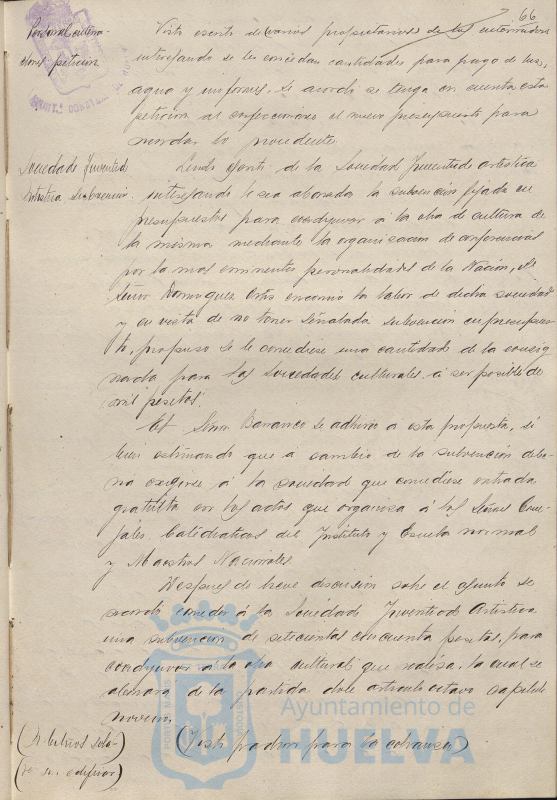 66
Visto escrito de varios propietarios de los enterradores
interesando se les concedan cantidades para pago de luz,
agua y uniformes, se acordó se tenga en cuenta esta
petición al confeccionar el nuevo presupuesto para
acordar lo procedente.
Sociedad Juventud
Artística Subvención.
Leido escrito de la Sociedad Juventud artística
interesando le sea abonada la subvención fijada en
presupuestos para coadyuvar á la obra de cultura de
la misma mediante la organización de conferencias
por las mas eminentes personalidades de la Nación, el
Señor Dominguez Ortiz encomió la labor de dicha sociedad
y en vista de no tener señalada subvención en presupues-
to, propuso se le concediese una cantidad de la consig-
nada para las sociedades culturales á ser posible de
mil pesetas.
El Señor Barranco se adhirió a esta propuesta, si
bien estimando que á cambio de la subvención debe-
ria exigirse á la sociedad que concediese entrada
gratuita en los actos que organiza á los Señores Conce-
jales, Catedráticos del Instituto y Escuela normal
y Maestros Nacionales.
Despues de breve discusión sobre el asunto se
acordó conceder á la Sociedad Juventud Artística
una subvención de setecientas cincuenta pesetas, para
coadyuvar á la obra cultural que realiza, la cual se
abonará de la partida doce articulo octavo capitulo
noveno.
(Arbitrios sola-
res sin edificar)
(Visto padron para la cobranza)
Ayuntamiento de
HUELVA